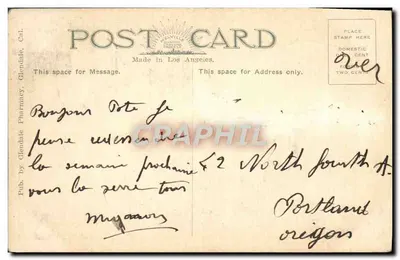 POST CARD
Made in Los Angeles.
This space for Message.
This space for Address only.
PLACE
STAMP HERE
DOMESTIC
ONE CENT
TWO CENTS
over
Pub. by Glendale Pharmacy, Glendale, Cal.
CARTE
Bonjour Pote Je
pense
la semaine prochaine
vous la serre tous
62 North fourth st
Portland
oregon